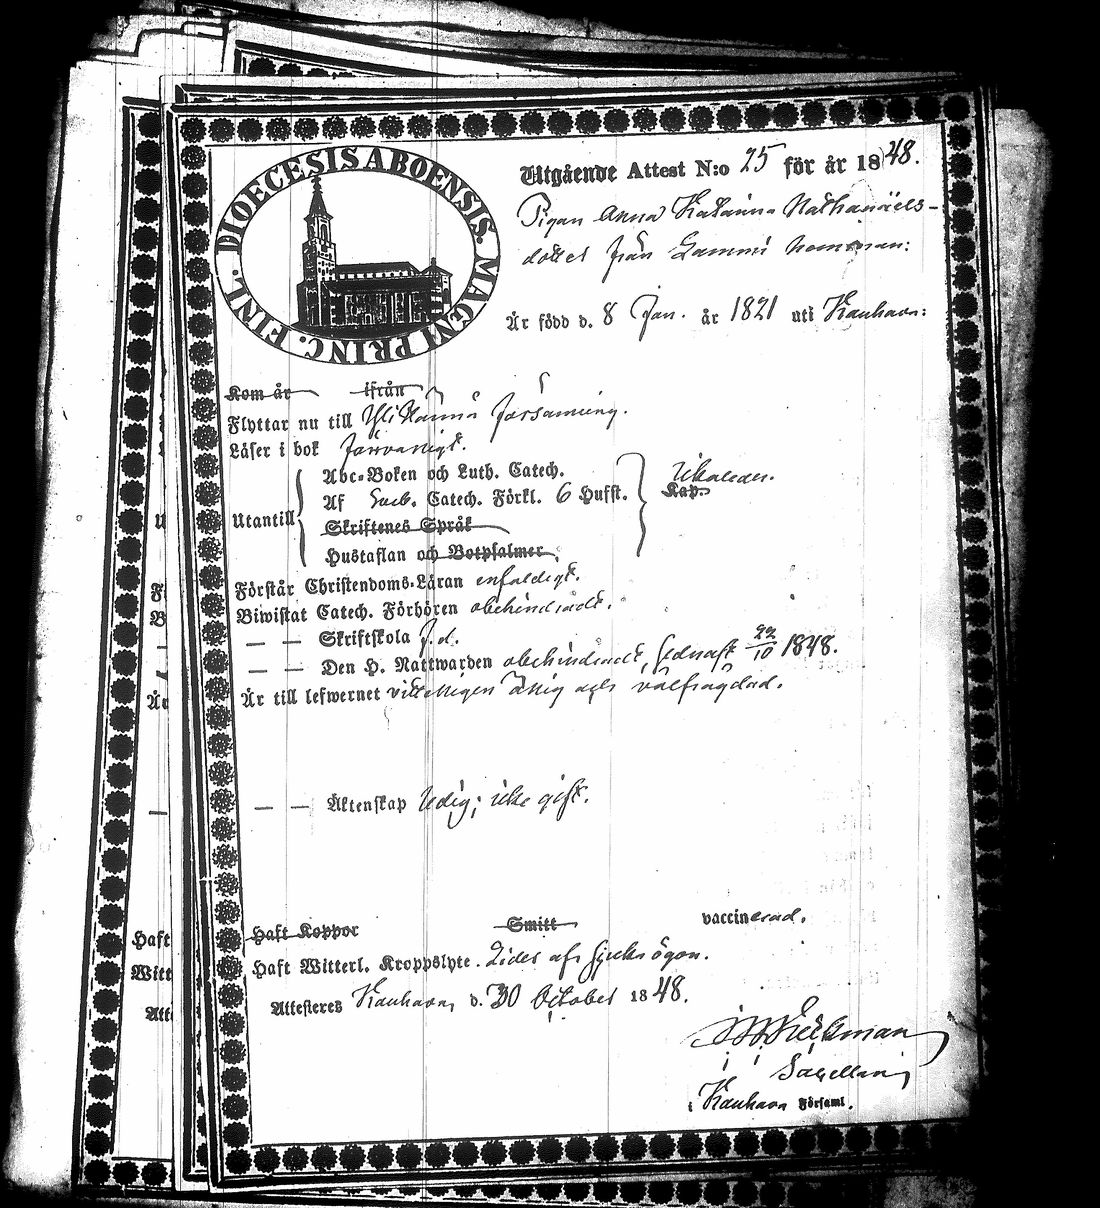 DIOECESIS ABOENSIS. MAGNI PRINC. FINL.
Utgående Attest N:o 25 för år 1848.
Pigan Anna Katarina Nathanäels-
dotter från Hemman:
Är född d. 8 Jan. år 1821 uti Kauhava:
Kom år ifrån
Flyttar nu till Ylikannus församling.
Läser i bok försvarligt.
Abc-Boken och Luth. Catech.
Af Sveb. Catech. Förkl. 6 Hufst.
Kap.
Utantill
Skriftenes Språk
Hustaflan och Botpsalmer
Förstår Christendoms-Läran enfaldigt.
Biwistat Catech. Förhören obehindradt.
— — Skriftskola d:o.
— — Den H. Nattwarden obehindradt, sednast 22/10 1848.
Är till lefwernet och välfrägdad.
— — Äktenskap ledig; icke gift.
Haft Koppor Smitt vaccinerad.
Haft Witterl. Kroppslyte. Lider af sjuka ögon.
Attesteres Kauhava, d. 30 October 1848.
Sacellan
i Kauhava Församl.
Haft
Witt
Att